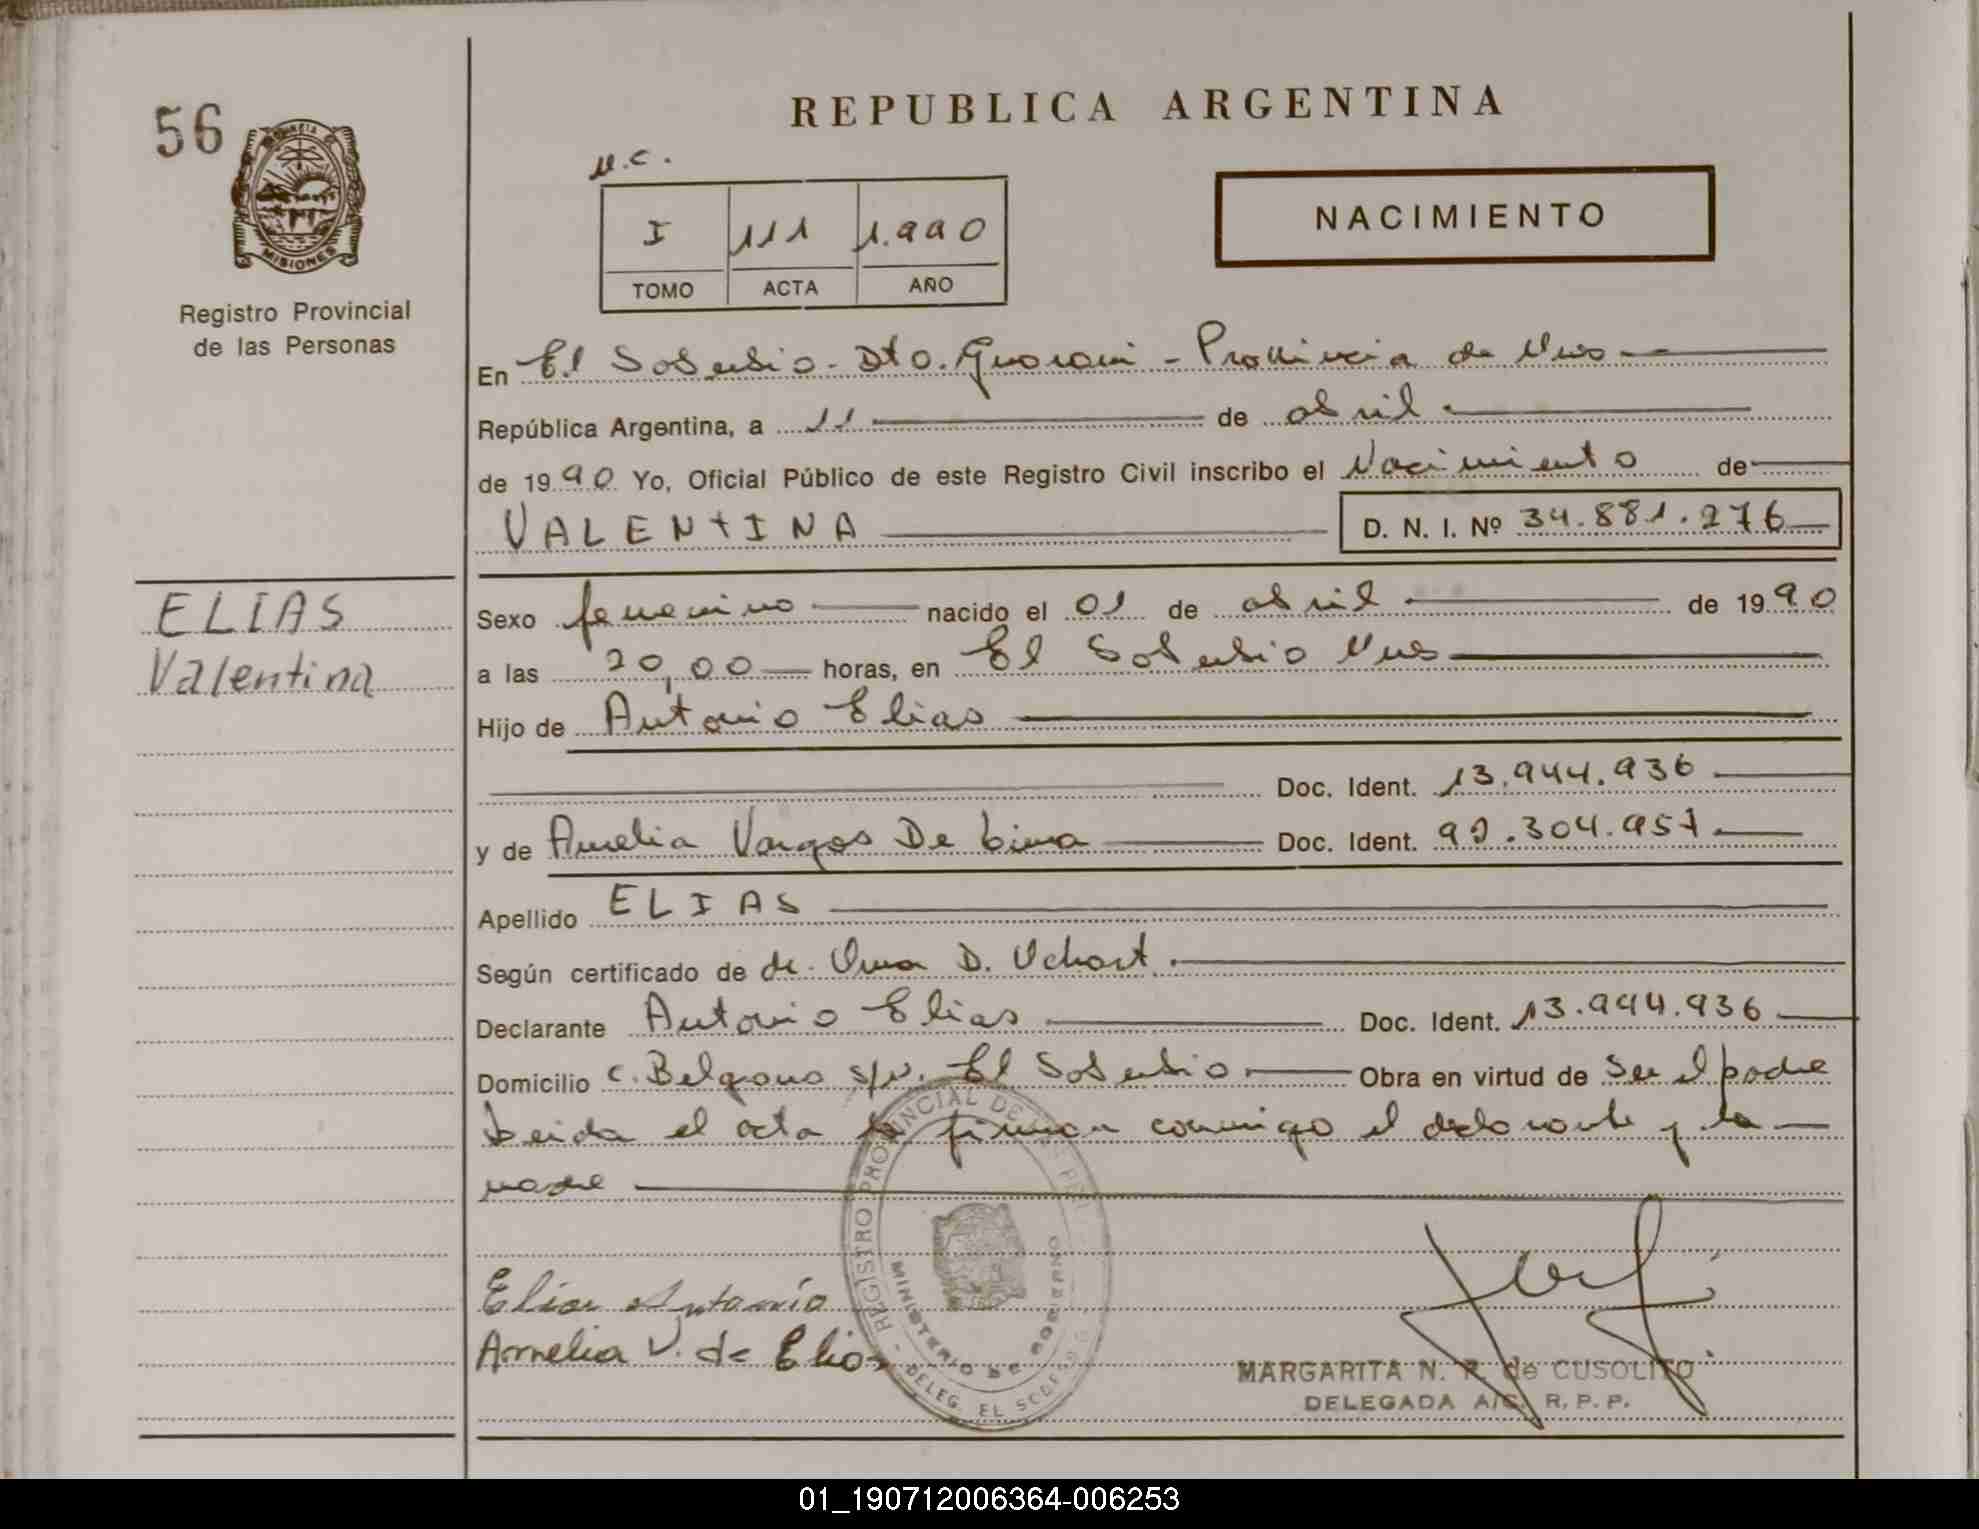 REPUBLICA ARGENTINA
56
PROVINCIA
MISIONES
Registro Provincial
de las Personas
N.C.
I 111 1.990
TOMO ACTA AÑO
NACIMIENTO
En El Soberbio - Dto. Guarani - Provincia de Mnes
República Argentina, a 11 de abril
de 1990 Yo, Oficial Público de este Registro Civil inscribo el Nacimiento de
VALENTINA D. N. I. Nº 34.881.276
ELIAS
Valentina
Sexo femenino nacido el 01 de abril de 1990
a las 20,00 horas, en El Soberbio Mnes
Hijo de Antonio Elias
Doc. Ident. 13.944.936
y de Amelia Vargas De Lima Doc. Ident. 92.304.957
Apellido ELIAS
Según certificado de dr. D.
Declarante Antonio Elias Doc. Ident. 13.944.936
Domicilio C. Belgrano s/n. El Soberbio Obra en virtud de Ser el padre
Leida el acta la firman conmigo el declarante y la
madre
Elias Antonio
Amelia V. de Elias
REGISTRO PROVINCIAL DE LAS PER
MINISTERIO DE GOBIERNO
DELEG. EL SOBERBIO
MARGARITA N. R. de CUSOLITO
DELEGADA A/C. R. P. P.
01_190712006364-006253